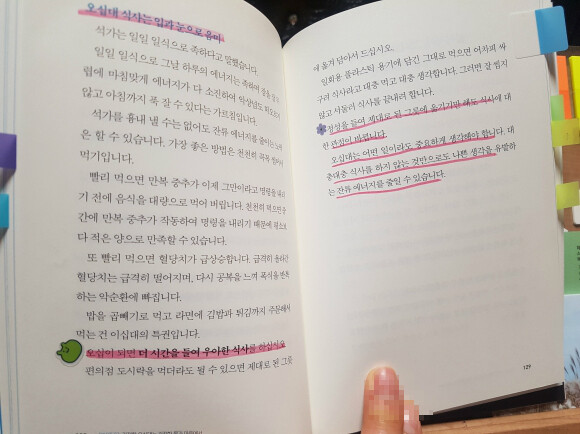 오십대 식사는 입과 눈으로 음미
석가는 일일 일식으로 족하다고 말했습니다.
일일 일식으로 그날 하루의 에너지는 족하며 잠을 잘
럽에 마침맞게 에너지가 다 소진하여 악상념도
않고 아침까지 푹 잘 수 있다는 가르침입니다.
석가를 흉내 낼 수는 없어도 잔류 에너지를 줄이는 노력
은 할 수 있습니다. 가장 좋은 방법은 천천히 꼭꼭 씹어
먹기입니다.
빨리 먹으면 만복 중추가 이제 그만이라고 명령을 내리
기 전에 음식을 대량으로 먹어 버립니다. 천천히 먹으면
간에 만복 중추가 작동하여 명령을 내리기 때문에 평소보
다 적은 양으로 만족할 수 있습니다.
또 빨리 먹으면 혈당치가 급상승합니다. 급격히 올라간
혈당치는 급격히 떨어지며, 다시 공복을 느껴 폭식을 반복
하는 악순환에 빠집니다.
밥을 곱빼기로 먹고 라면에 김밥과 튀김까지 주문해서
먹는 건 이십대의 특권입니다.
오십이 되면 더 시간을 들여 우아한 식사를 하십시오.
편의점 도시락을 먹더라도 될 수 있으면 제대로 된 그릇
에 옮겨 담아서 드십시오.
일회용 플라스틱 용기에 담긴 그대로 먹으면 어차피 싸
구려 식사라고 대충 먹고 대충 생각합니다. 그러면 잘 씹지
않고 서둘러 식사를 끝내려 합니다.
정성을 들여 제대로 된 그릇에 옮기기만 해도 식사에 대
한 관점이 바뀝니다.
오십대는 어떤 일이라도 중요하게 생각해야 합니다. 대
충대충 식사를 하지 않는 것만으로도 나쁜 생각을 유발하
는 잔류 에너지를 줄일 수 있습니다.
129